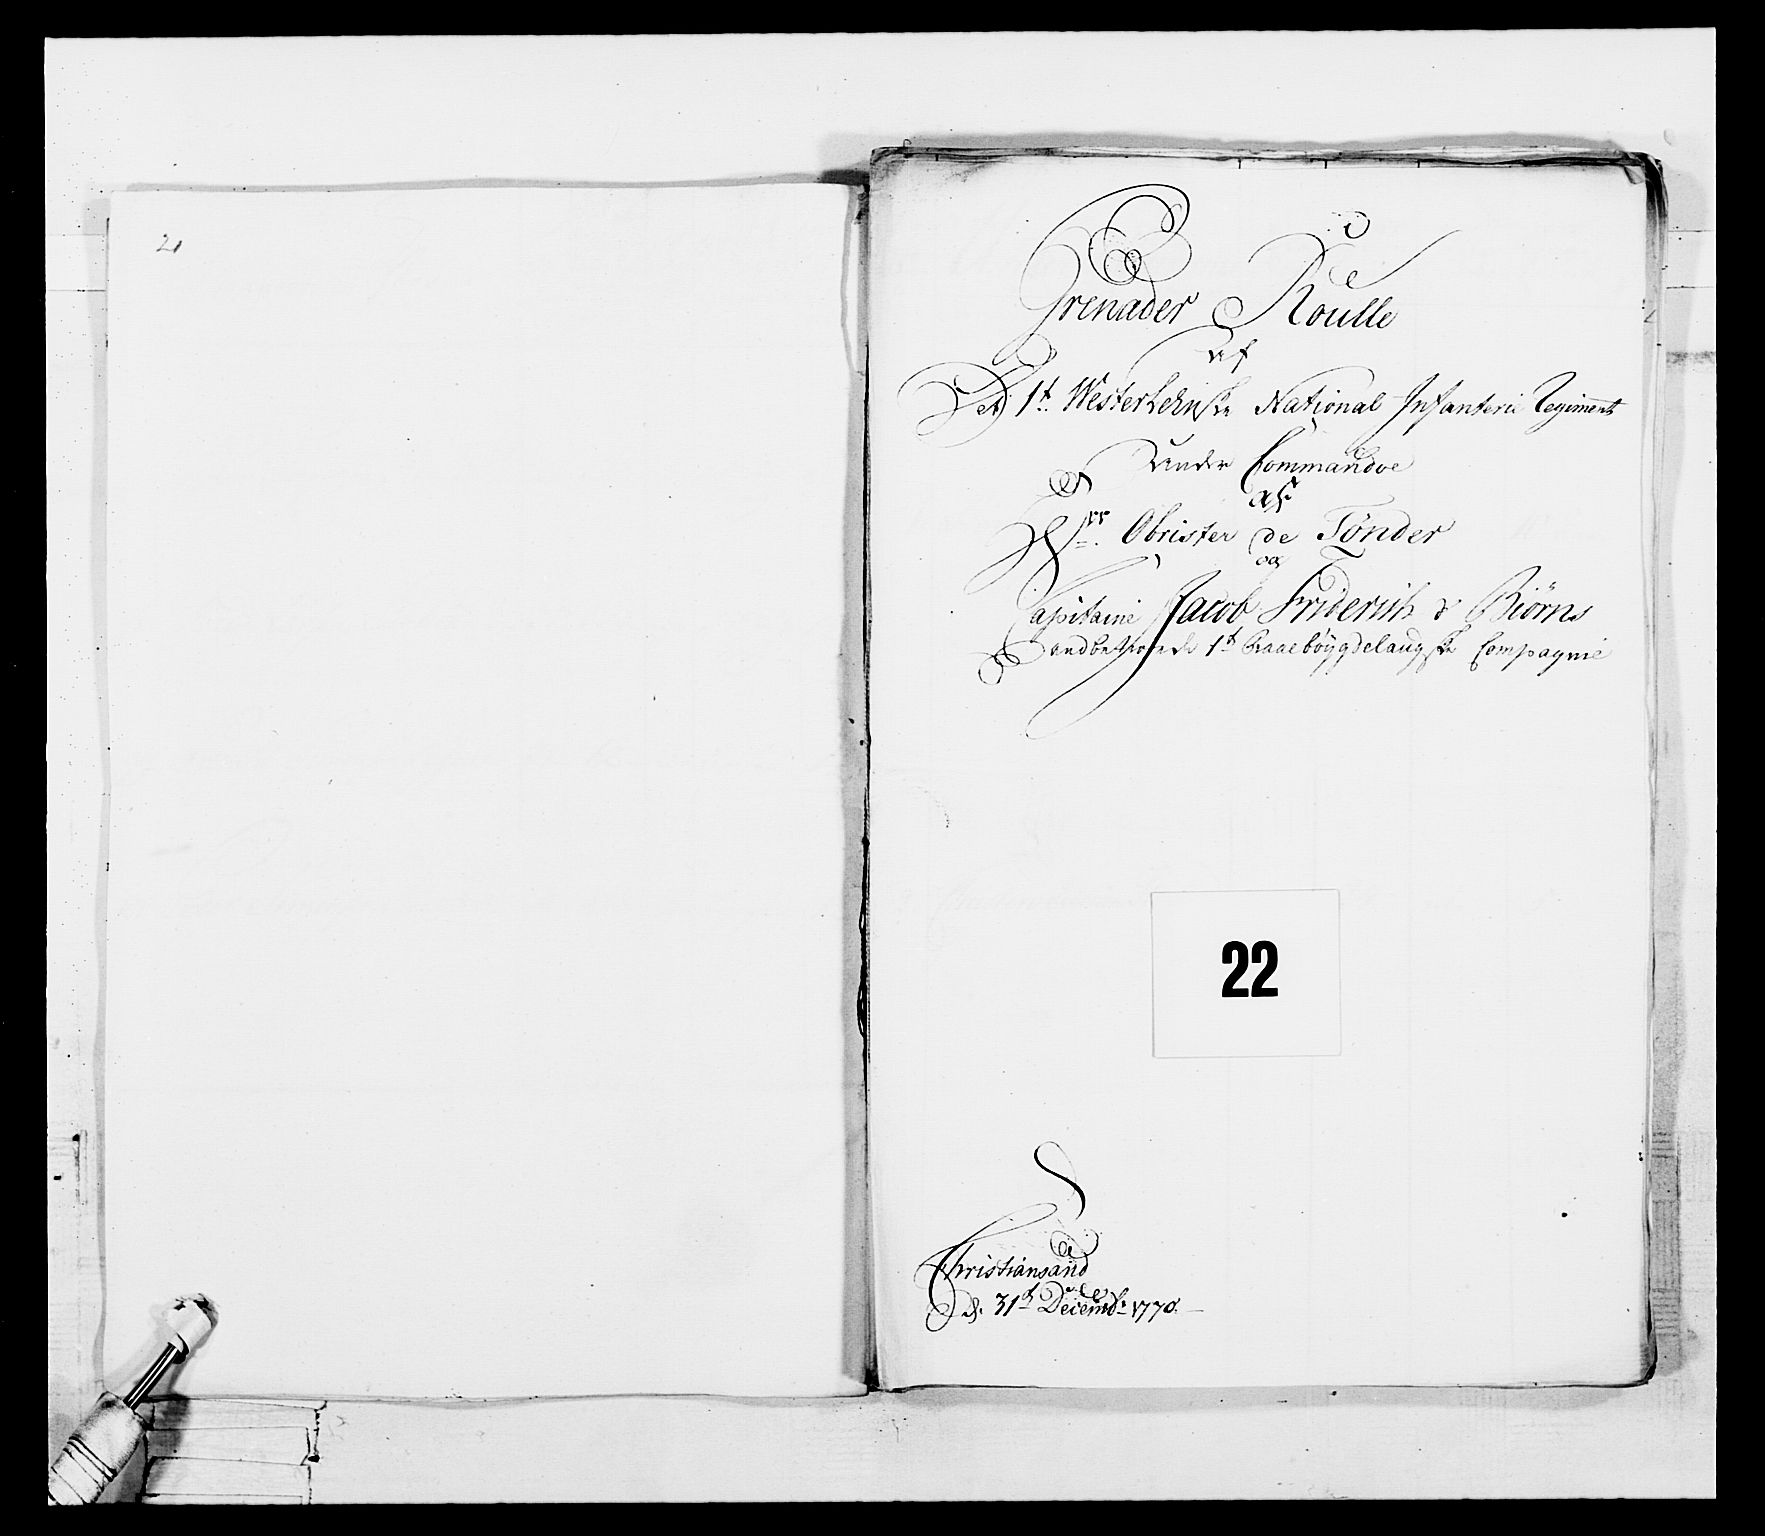 21
Grenader Roulle
af
Det 1t. Westerlehnske National Infanterie Regiment
Under Commandoe
af
Hrr. Obrister de Tønder
og
Capitaine Jacob Friderich v Biørns
andbetroede 1t Raaebøygdelaugske Compagnie
22
Christiansand
d. 31t Decembr 1770.